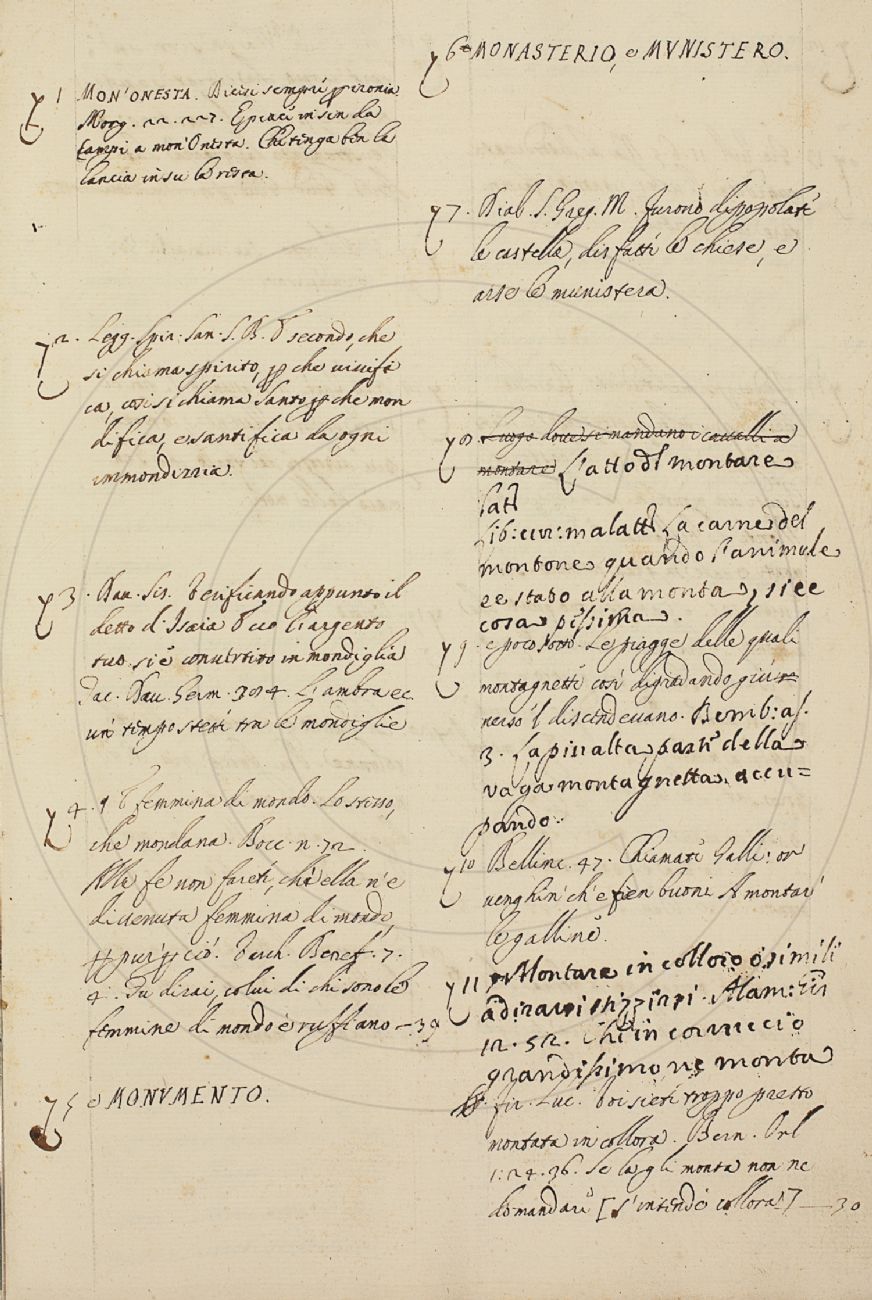 1 MON'ONESTA. Dicesi sempre per ironia.
Morg. 22. 227. E piacc' in sin da
campi a mon' Onesta. Che tenga ben la
lancia in su la resta.
2. Legg. Spir: San: S. B. secondo, che
si chiama spirito, p che vivifi
ca, così si chiama Santo p che mon
difica, e santifica da ogni
immondizzia.
3. Dav. Scis. Verificando appunto il
detto d'Isaia Tuo l'argento
tuo si è convertito in mondiglia
Dav. L'ambra ec.
un tempo stette tra le mondiglie
4. femmina di mondo. Lo stesso,
che mondana. Bocc. n. 72
fe non farete, ch'ella n'è
divenuta femmina di mondo,
p per ciò. Varch. Benef. 7.
4. Tu dirai, colui di chi sono le
femmine di mondo è ruffiano — 39
5 e MONVMENTO.
6 MONASTERIO, e MVNISTERO.
7. Dial. S. Greg. M. Furono dippopolate
le castella, disfatte le chiese, e
arse le munistera.
8 Luogo dove si mandano i cavalli a
montare L'atto dl montare
Lat
Lib: cur: malatt La carne del
montone quando l'animale
ee stato alla monta, si ee
cosa pissima.
9. e poco sotto. Le piagge delle quali
montagnette così digradando giu
verso 'l discendevano. Bemb: as.
3. La piu alta parte della
vaga montagnetta occu=
pando.
10 Bellinc. 47. Chiamate Galli: or
venghin' ch'e sien buoni A montar'
le galline.
11 Montare in collora o simili
adirarsi stizzirsi. Alam:
12. 52. Che in corruccio
grandissimo ne monta
fir. Luc. Voi siete troppo presto
montata in collora. Bern. Orl
1: 24. 36. Se la gli monta non ne
domandare [s'intende collora] — 30